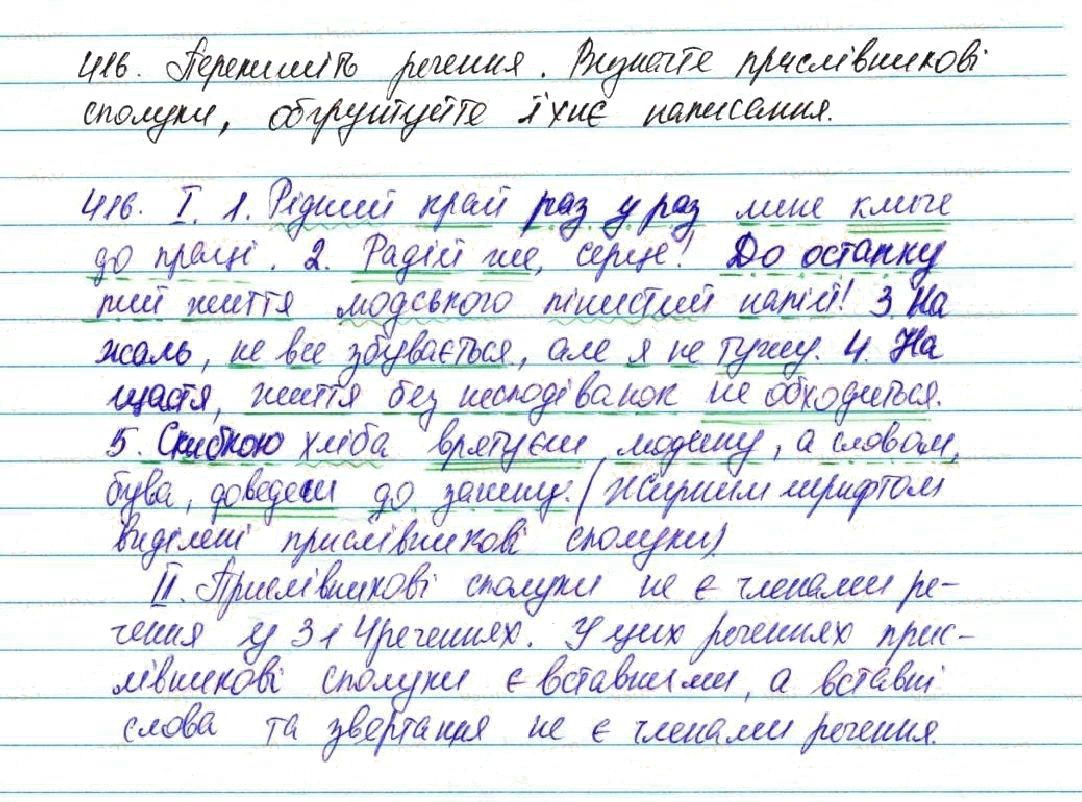 416. Перепишіть речення. Визначте прислівникові
сполуки, обґрунтуйте їхнє написання.
416. I. 1. Рідний край раз у раз мене кличе
до праці. 2. Радій же, серце! До останку
пий життя людського пінистий напій! 3. На
жаль, не все збувається, але я не тужу. 4. На
щастя, життя без несподіванок не обходиться.
5. Скибкою хліба врятуєш людину, а словом,
бува, доведеш до загину. (Жирним шрифтом
виділені прислівникові сполуки)
II. Прислівникові сполуки не є членами ре-
чення у 3 і 4 реченнях. У цих реченнях прис-
лівникові сполуки є вставними, а вставні
слова та звертання не є членами речення.